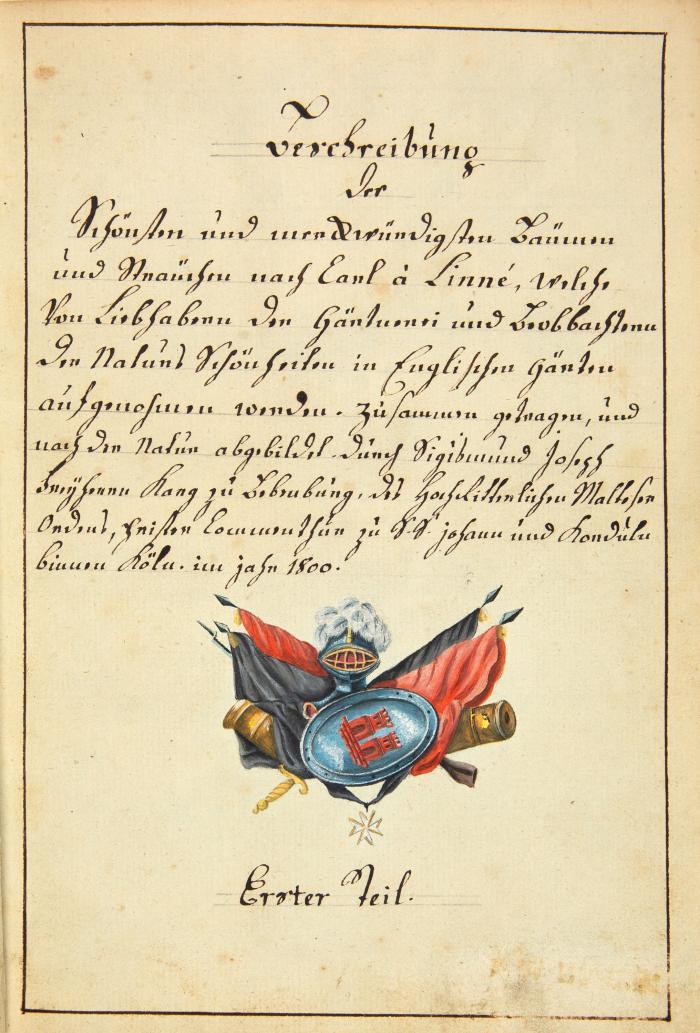 Beschreibung
der
Schönsten und merckwürdigsten Baümen
und Straüchen nach Carl à Linné, welche
Von Liebhabern der Gärtnerei und Beobbachtern
der Naturs Schönheiten in Englischen Gärten
aufgenohmen werden. Zusammen getragen, und
nach der Natur abgebildet durch Sigismund Joseph
Freÿherrn von zu Bebenburg, des Hochritterlichen Malteser
Ordens, Priester Commenthur zu S.S. Johann und Kordula
binnen Köln. im jahr 1800.
Erster Teil.